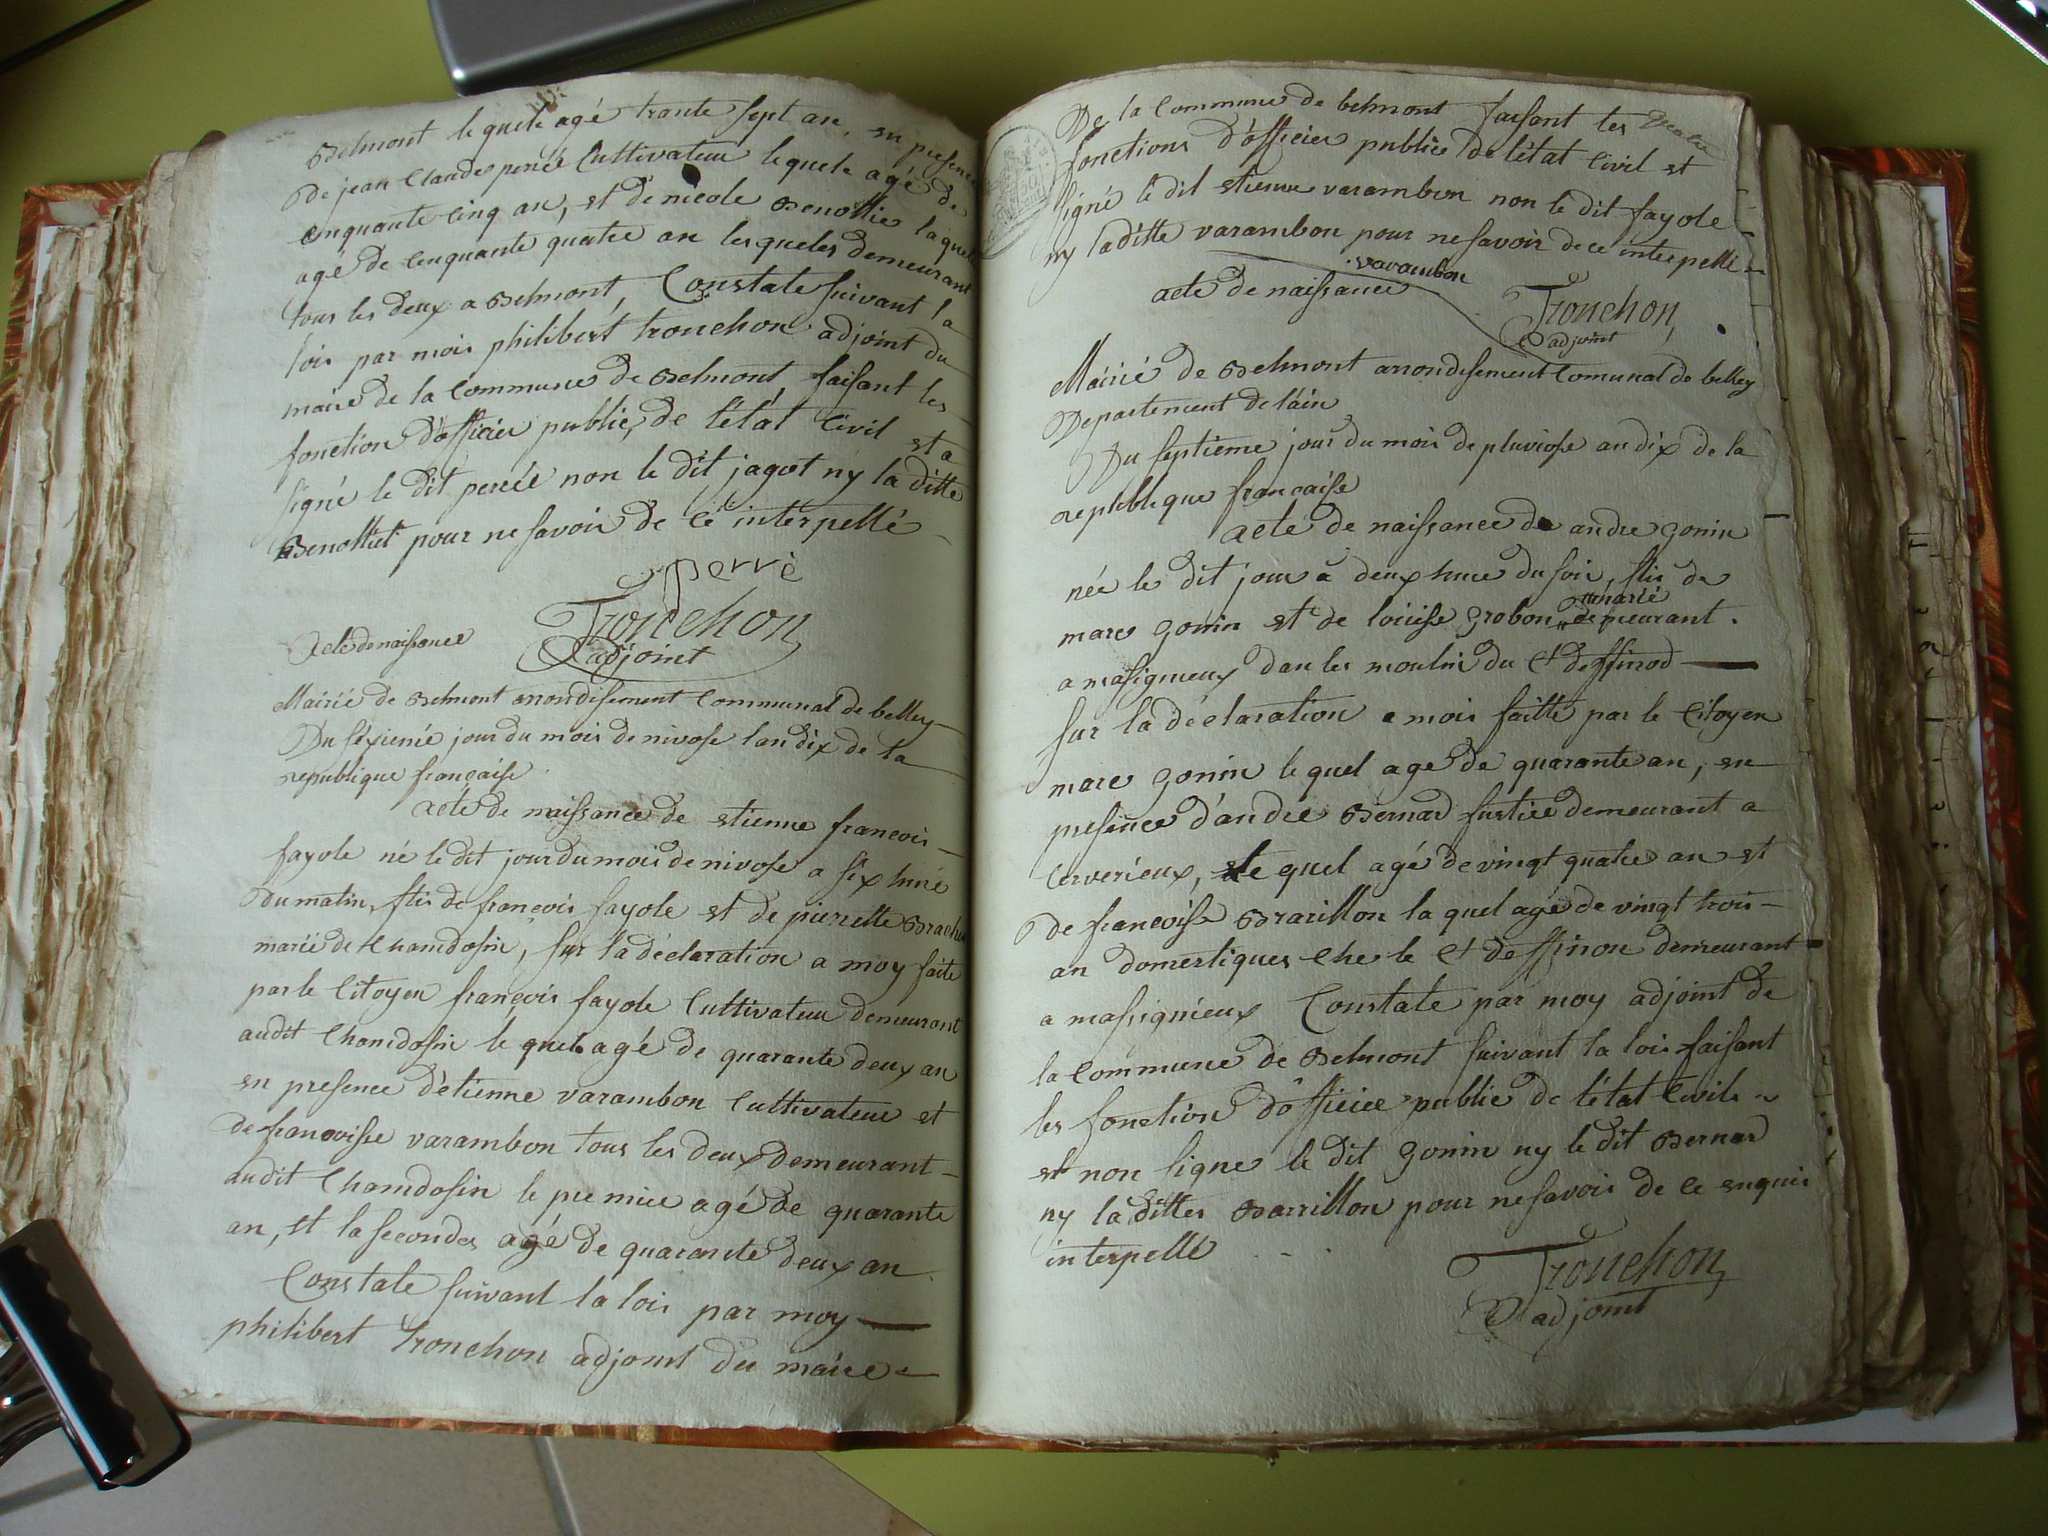 Belmont le quele agé trante sept an, en presence
De jean Claude perré Cultivateur le quele agé de
cinquante cinq an, et de nicole Benottie laquel
agé de cinquante quatre an lesqueles demeurant
tous les deux a Belmont, Constate suivant la
lois par mois philibert tronchon adjoint du
maire de la Commune de Belmont, faisant les
fonction d'officier public, de l'état Civil et a
signé le dit perréé non le dit jagot ny la ditte
Benottiet pour ne savoir de cé interpellé
perré
Tronchon
adjoint
Acte de naissance
Mairié de Belmont arrondisement Communal de belley
Du séxiemé jour du mois de nivose l'an dix de la
republique française
acté de naissance de etienne francois
fayole né le dit jour du mois de nivose a six hure
du matin, fils de françois fayole et de pierrette Brachet
marié de Chamdosin, sur la déclaration a moy faite
par le Citoyen françois fayole Cultivateur demeurant
audit Chamdosin le quele agé de quarante deux an
en presence d'étienne varambon Cultivateur et
de francoisse varambon tous les deux demeurant
audit Chamdosin le premier agé de quarante
an, et la secondes agé de quarante deux an
Constate suivant la lois par moy
philibert tronchon adjoint du maire
De la Commune de belmont faisant les
fonctions d'officier public de l'état Civil et
signé le dit etienne varambon non le dit fayole
ny laditte varambon pour ne savoir de ce interpellé
varambon
acte de naissance
Tronchon
adjoint
Mairié de Belmont arrondisement Comunal de belley
Departement de l'ain
Du septieme jour du mois de pluviose an dix de la
republique française
acté de naissance de andre gonin
née le dit jour a deux hure du soir, fils de
marié
marc gonin et de loiuise grobon demeurant
a masigneux dan les moulin du Ct deffinod
sur la déclaration a mois faitte par le Citoyen
marc gonin le quel age de quarante an, en
presence d'andré Bernard fustier demeurant a
Cerverieux, le quel agé de vingt quatre an et
De francoisse Brarillon la quel agé de vingt trois
an domestiques ches le Ct deffinon demeurant
a massignieux Constate par moy adjoint de
la Commune de Belmont suivant la lois faisant
les fonction d'officier public de l'état Civil
et non signe le dit gonin ny le dit Bernard
ny la dittes Barrillon pour ne savoir de ce enquis
interpellé
Tronchon
adjoint